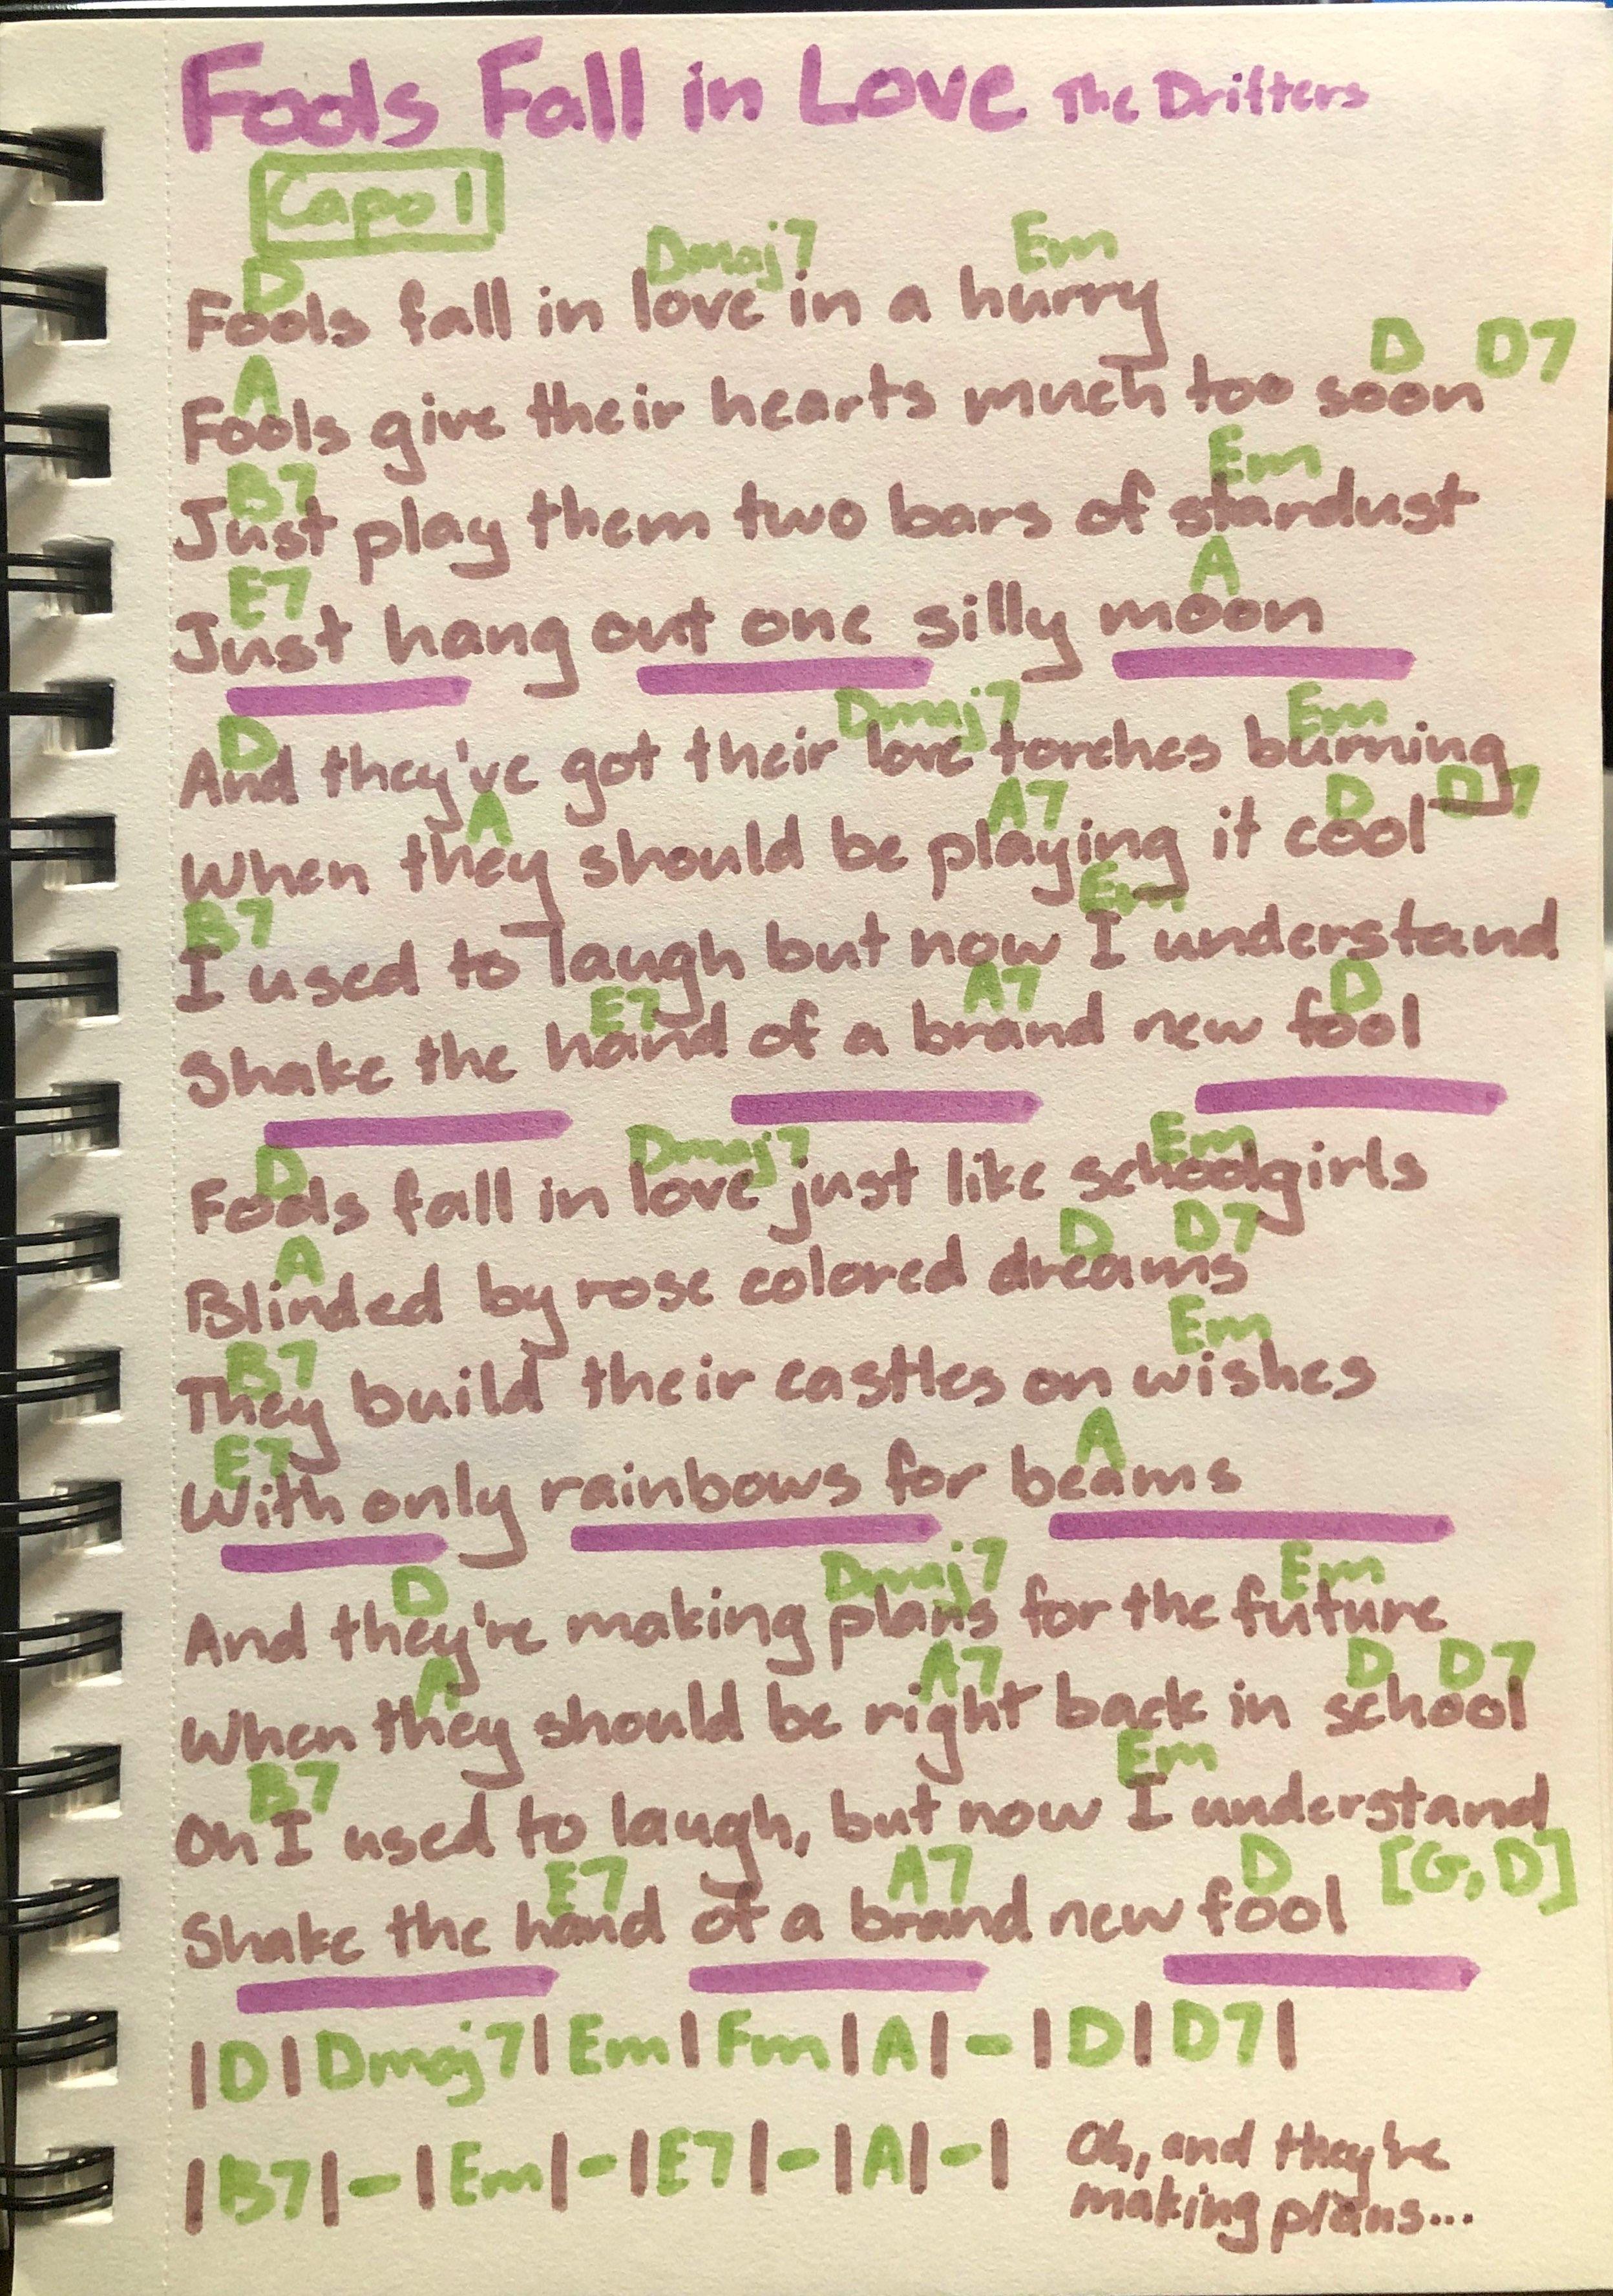 Fools Fall in Love The Drifters
Capo 1
D Dmaj7 Em
Fools fall in love in a hurry
A D D7
Fools give their hearts much too soon
B7 Em
Just play them two bars of stardust
E7 A
Just hang out one silly moon
D Dmaj7 Em
And they've got their love torches burning
A A7 D D7
When they should be playing it cool
B7 Em
I used to laugh but now I understand
E7 A7 D
Shake the hand of a brand new fool
D Dmaj7 Em
Fools fall in love just like schoolgirls
A D D7
Blinded by rose colored dreams
B7 Em
They build their castles on wishes
E7 A
With only rainbows for beams
D Dmaj7 Em
And they're making plans for the future
A A7 D D7
When they should be right back in school
B7 Em
Oh I used to laugh, but now I understand
E7 A7 D [G, D]
Shake the hand of a brand new fool
|D|Dmaj7|Em|Fm|A|-|D|D7|
|B7|-|Em|-|E7|-|A|-| Oh, and they're
making plans...